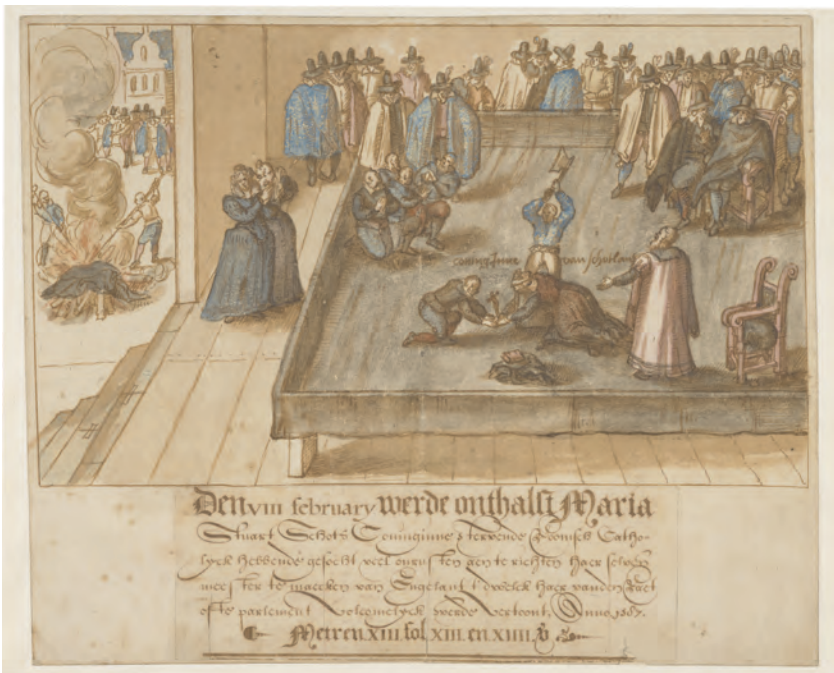 coninginne van schotlant
Den VIII february werde onthalst Maria
Stuart Schots Coninginne stervende Roomsch Catho-
lyck hebbende gesocht veel onrusten aen te richten haer selven
meester te maecken van Engelant t'welck haer vanden Raet
ofte parlement volcomelyck werde vertoont, Anno 1587.
Meteren XIII. fol. XIII. en XIIII.